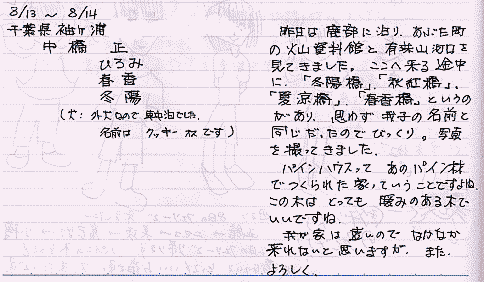 8/13 ~ 8/14
千葉県袖ヶ浦
中橋 正
ひろみ
春香
冬陽
(犬:外犬なので 車中泊でした.
名前は クッキー ♂ です)
昨日は 鹿部に泊り、あぶた町
の火山資料館と有珠山河口を
見てきました。ここへ来る途中
に、「冬陽橋」、「秋紅橋」、
「夏涼橋」、「春香橋」というの
があり、思わず 我子の名前と
同じだったのでびっくり。写真
を撮ってきました.
パインハウスって あのパイン材
でつくられた家っていうことですよね.
この木は とっても 暖みのある木で
いいですね.
我が家は 遠いので なかなか
来れないと思いますが、また.
よろしく.